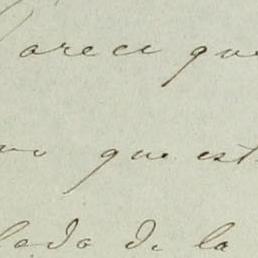 Parece que
que est
lado de la